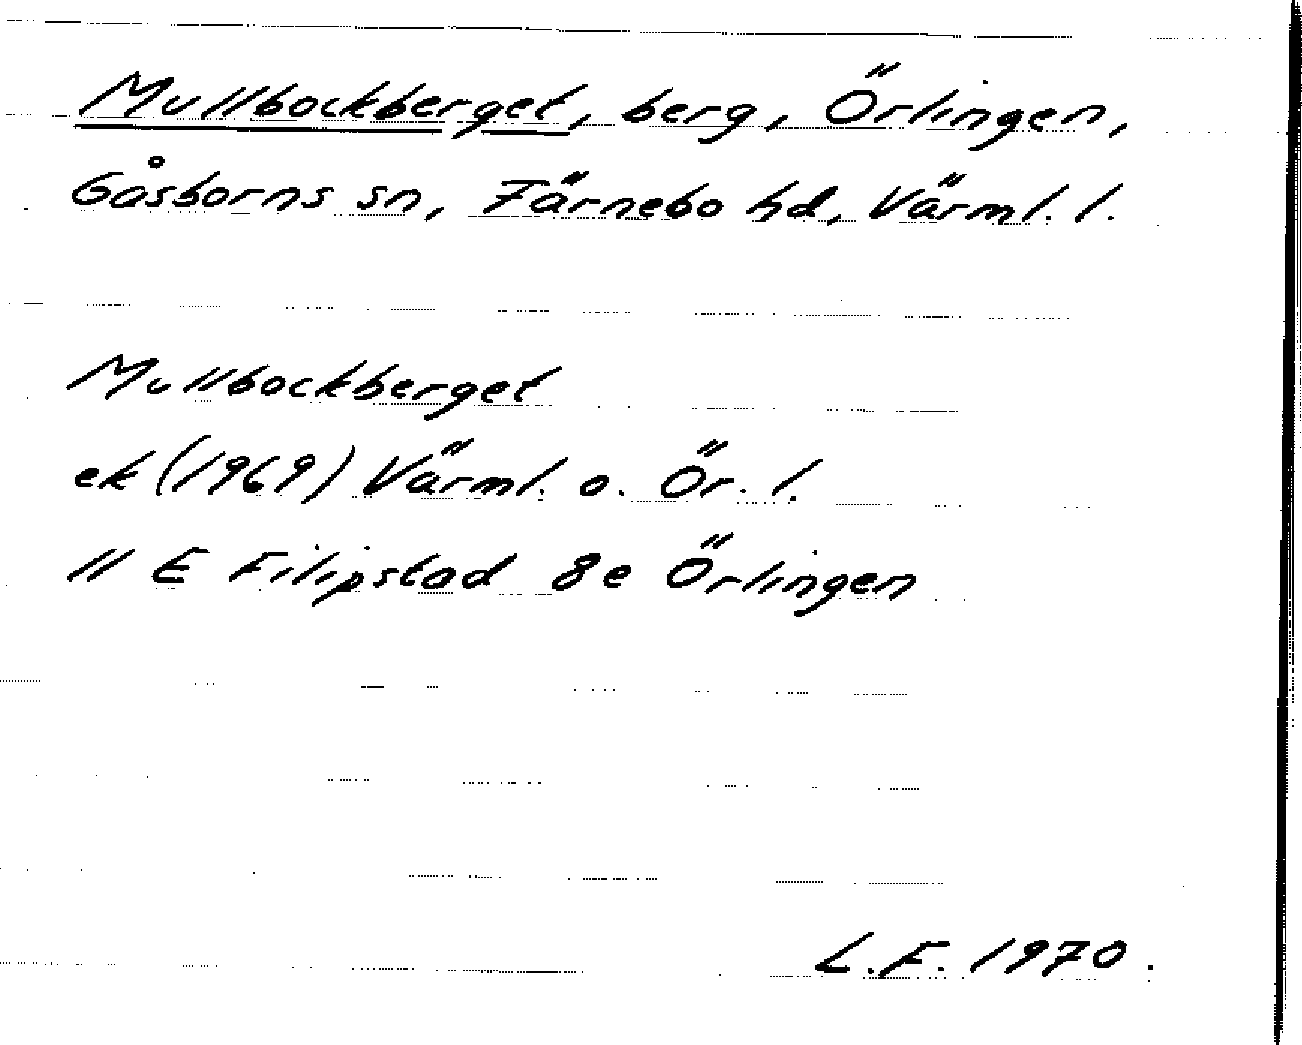 Mullbockberget, berg, Örlingen,
Gåsborns sn, Färnebo hd, Värml. l.
Mullbockberget
ek (1969) Värml. o. Ör. l.
11 E Filipstad 8e Örlingen
L.F. 1970.